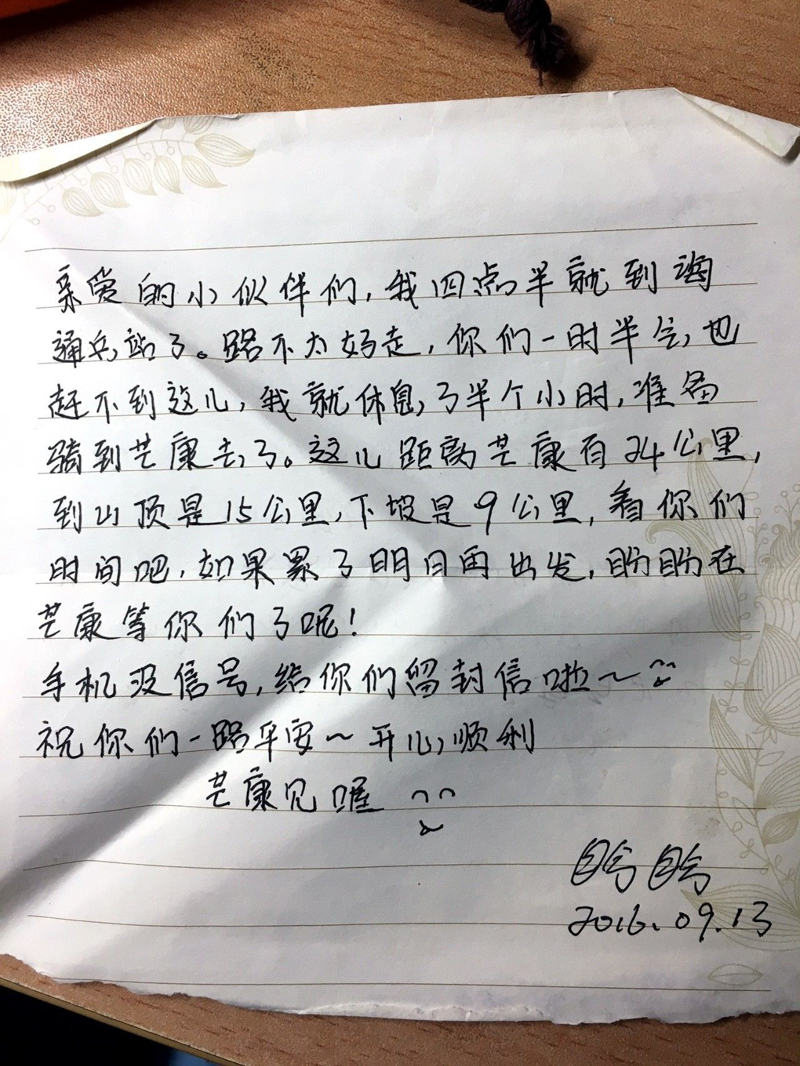 亲爱的小伙伴们，我四点半就到海
通兵站了。路不太好走，你们一时半会也
赶不到这儿，我就休息了半个小时，准备
骑到芒康去了。这儿距离芒康有24公里，
到山顶是15公里，下坡是9公里，看你们
时间吧，如果累了明日再出发，盼盼在
芒康等你们了呢！
手机没信号，给你们留封信啦～
祝你们一路平安～开心，顺利
芒康见喔
盼盼
2016.09.13